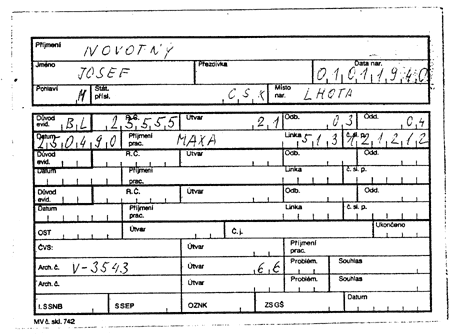 Příjmení NOVOTNÝ
Jméno JOSEF Přezdívka Data nar. 01011940
Pohlaví M Stát. přísl. CSX Místo nar. LHOTA
Důvod evid. BL R.Č. 25555 Útvar 21 Odb. 03 Odd. 04
Datum 250490 Příjmení prac. MAXA Linka 513 č. sl. p. 21212
Důvod evid. R.Č. Útvar Odb. Odd.
Datum Příjmení prac. Linka č. sl. p.
Důvod evid. R.Č. Útvar Odb. Odd.
Datum Příjmení prac. Linka č. sl. p.
OST Útvar Č.j. Ukončeno
ČVS: Útvar Příjmení prac.
Arch. č. V-3543 Útvar 66 Problém. Souhlas
Arch. č. Útvar Problém. Souhlas
I.SSNB SSEP OZNK ZSGŠ Datum
MV č. skl. 742